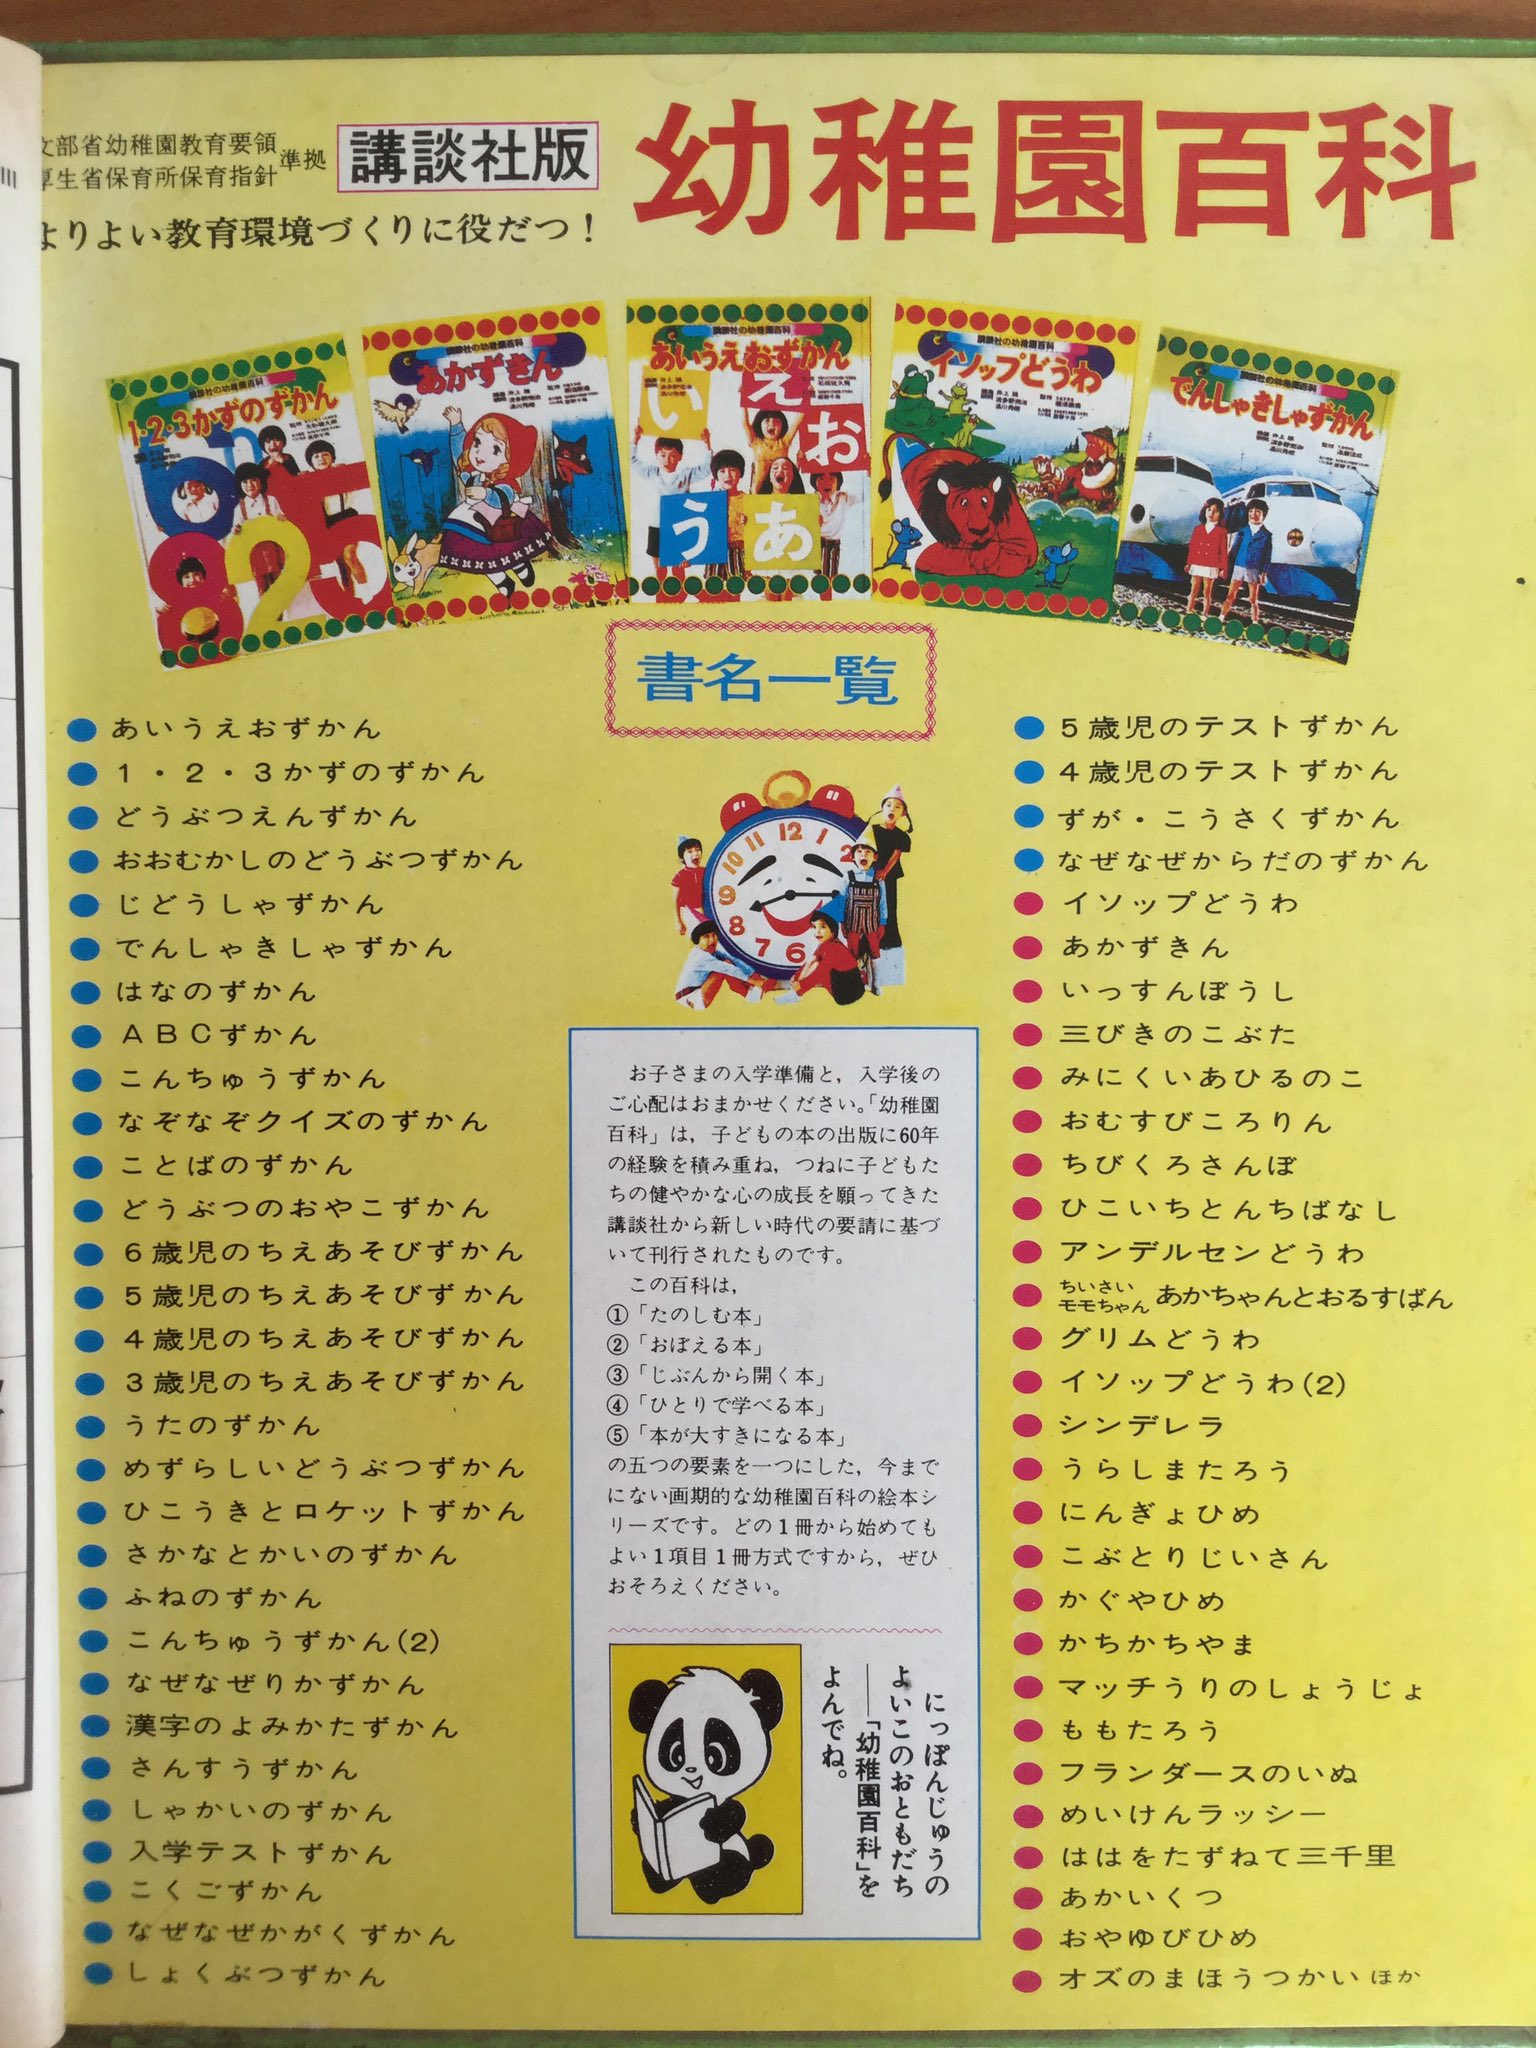 文部省幼稚園教育要領
厚生省保育所保育指針
準拠
講談社版
幼稚園百科
よりよい教育環境づくりに役だつ！
講談社の幼稚園百科
1・2・3かずのずかん
講談社の幼稚園百科
あかずきん
講談社の幼稚園百科
あいうえおずかん
い
え
お
う
あ
講談社の幼稚園百科
イソップどうわ
講談社の幼稚園百科
でんしゃきしゃずかん
書名一覧
あいうえおずかん
1・2・3かずのずかん
どうぶつえんずかん
おおむかしのどうぶつずかん
じどうしゃずかん
でんしゃきしゃずかん
はなのずかん
ABCずかん
こんちゅうずかん
なぞなぞクイズのずかん
ことばのずかん
どうぶつのおやこずかん
6歳児のちえあそびずかん
5歳児のちえあそびずかん
4歳児のちえあそびずかん
3歳児のちえあそびずかん
うたのずかん
めずらしいどうぶつずかん
ひこうきとロケットずかん
さかなとかいのずかん
ふねのずかん
こんちゅうずかん(2)
なぜなぜりかずかん
漢字のよみかたずかん
さんすうずかん
しゃかいのずかん
入学テストずかん
こくごずかん
なぜなぜかがくずかん
しょくぶつずかん
12 1 2 6 7 8 9 10 11
お子さまの入学準備と，入学後の
ご心配はおまかせください。「幼稚園
百科」は，子どもの本の出版に60年
の経験を積み重ね，つねに子どもた
ちの健やかな心の成長を願ってきた
講談社から新しい時代の要請に基づ
いて刊行されたものです。
この百科は，
①「たのしむ本」
②「おぼえる本」
③「じぶんから開く本」
④「ひとりで学べる本」
⑤「本が大すきになる本」
の五つの要素を一つにした，今まで
にない画期的な幼稚園百科の絵本シ
リーズです。どの1冊から始めても
よい1項目1冊方式ですから，ぜひ
おそろえください。
にっぽんじゅうの
よいこのおともだち
──「幼稚園百科」を
よんでね。
5歳児のテストずかん
4歳児のテストずかん
ずが・こうさくずかん
なぜなぜからだのずかん
イソップどうわ
あかずきん
いっすんぼうし
三びきのこぶた
みにくいあひるのこ
おむすびころりん
ちびくろさんぼ
ひこいちとんちばなし
アンデルセンどうわ
ちいさいモモちゃん あかちゃんとおるすばん
グリムどうわ
イソップどうわ(2)
シンデレラ
うらしまたろう
にんぎょひめ
こぶとりじいさん
かぐやひめ
かちかちやま
マッチうりのしょうじょ
ももたろう
フランダースのいぬ
めいけんラッシー
ははをたずねて三千里
あかいくつ
おやゆびひめ
オズのまほうつかい ほか